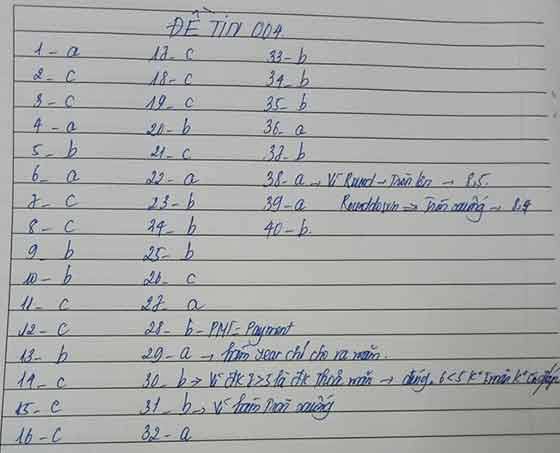 ĐỀ TIN 004
1 - a
2 - c
3 - c
4 - a
5 - b
6 - a
7 - c
8 - c
9 - b
10 - b
11 - c
12 - c
13 - b
14 - c
15 - c
16 - c
17 - c
18 - c
19 - c
20 - b
21 - c
22 - a
23 - b
24 - b
25 - b
26 - c
27 - a
28 - b - PMT - Payment
29 - a → hàm year chỉ cho ra năm.
30 - b → Vì đk 7>3 là đk thỏa mãn → đúng, 6<5 k°
31 - b → Vì hàm tròn xuống
32 - a
33 - b
34 - b
35 - b
36 - a
37 - b
38 - a → Vì Round → Tròn lên → 8,5.
39 - a Rounddown → Tròn xuống → 8,4
40 - b.